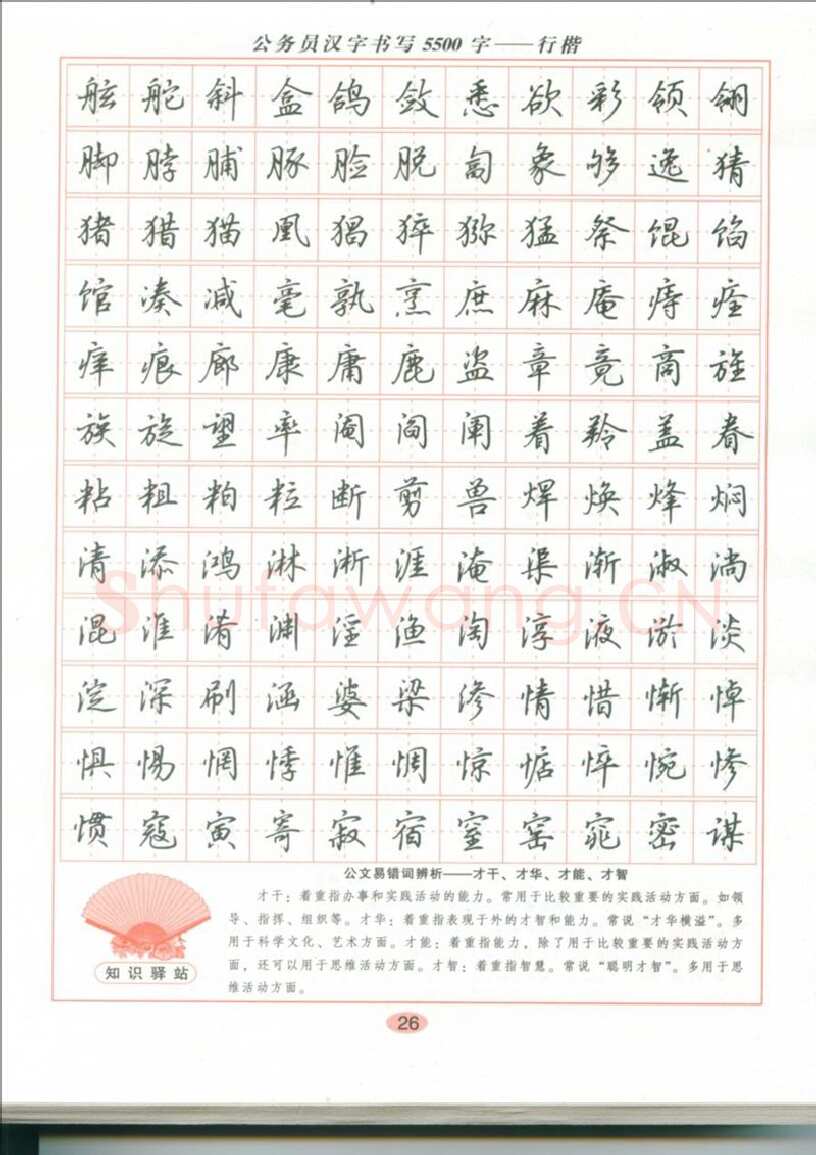 公务员汉字书写5500字——行楷
舷舵斜盒鸽敛悉欲彩领翎
脚脖脯豚脸脱匐象够逸猜
猪猎猫凰猖猝猕猛祭馄馅
馆凑减毫孰烹庶麻庵痔痊
痒痕廊康庸鹿盗章竟商旌
族旋望率阇阎阐着羚盖眷
粘粗粕粒断剪兽焊焕烽焖
清添鸿淋淅涯淹渠渐淑淌
混淮淆渊淫渔淘淳液淤淡
淀深刷涵婆梁渗情惜惭悼
惧惕惘悸惟惆惊惦悴惋惨
惯寇寅寄寂宿窒窑窕密谋
公文易错词辨析——才干、才华、才能、才智
才干：着重指办事和实践活动的能力。常用于比较重要的实践活动方面。如领
导、指挥、组织等。才华：着重指表现于外的才智和能力。常说“才华横溢”。多
用于科学文化、艺术方面。才能：着重指能力，除了用于比较重要的实践活动方
面，还可以用于思维活动方面。才智：着重指智慧。常说“聪明才智”。多用于思
维活动方面。
知识驿站
26
Shufawang.CN